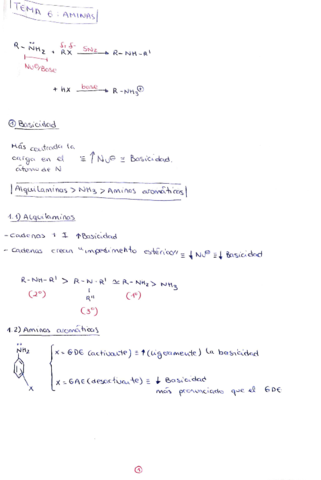 TEMA 6: AMINAS
R-N̈H₂ + RX →(SN2) R-NH-R'
Nu⊖/Base
+ hx →(base) R-NH₃⊕
① Basicidad
Más centrada la
carga en el ≡ ↑ Nu⊖ ≡ Basicidad.
átomo de N
Alquilaminas > NH₃ > Aminas aromáticas
1.1) Alquilaminas
- cadenas + I ↑Basicidad
- cadenas crean "impedimento estérico" ≡ ↓ Nu⊖ ≡ ↓ Basicidad
R-NH-R' > R-N-R' ≅ R-NH₂ > NH₃
(2º) R" (1º)
(3º)
1.2) Aminas aromáticas
N̈H₂ x = GDE (activante) ≡ ↑ (ligeramente) la basicidad
x = GAE (desactivante) ≡ ↓ Basicidad
x más pronunciado que el GDE
①